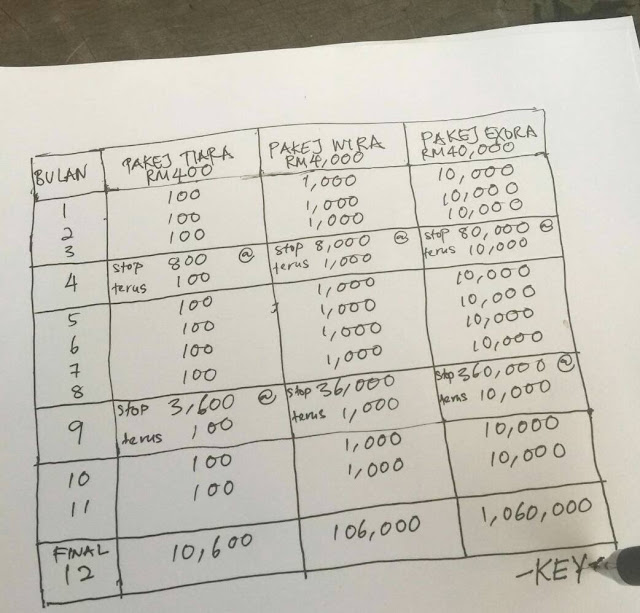 BULAN PAKEJ TIARA RM400 PAKEJ WIRA RM4,000 PAKEJ EXORA RM40,000
1 100 1,000 10,000
2 100 1,000 10,000
3 100 1,000 10,000
4 stop 800 @ stop 8,000 @ stop 80,000 @
terus 100 terus 1,000 terus 10,000
5 100 1,000 10,000
6 100 1,000 10,000
7 100 1,000 10,000
8 100 1,000 10,000
9 stop 3,600 @ stop 36,000 stop 360,000 @
terus 100 terus 1,000 terus 10,000
10 100 1,000 10,000
11 100 1,000 10,000
FINAL 12 10,600 106,000 1,060,000
-KEY